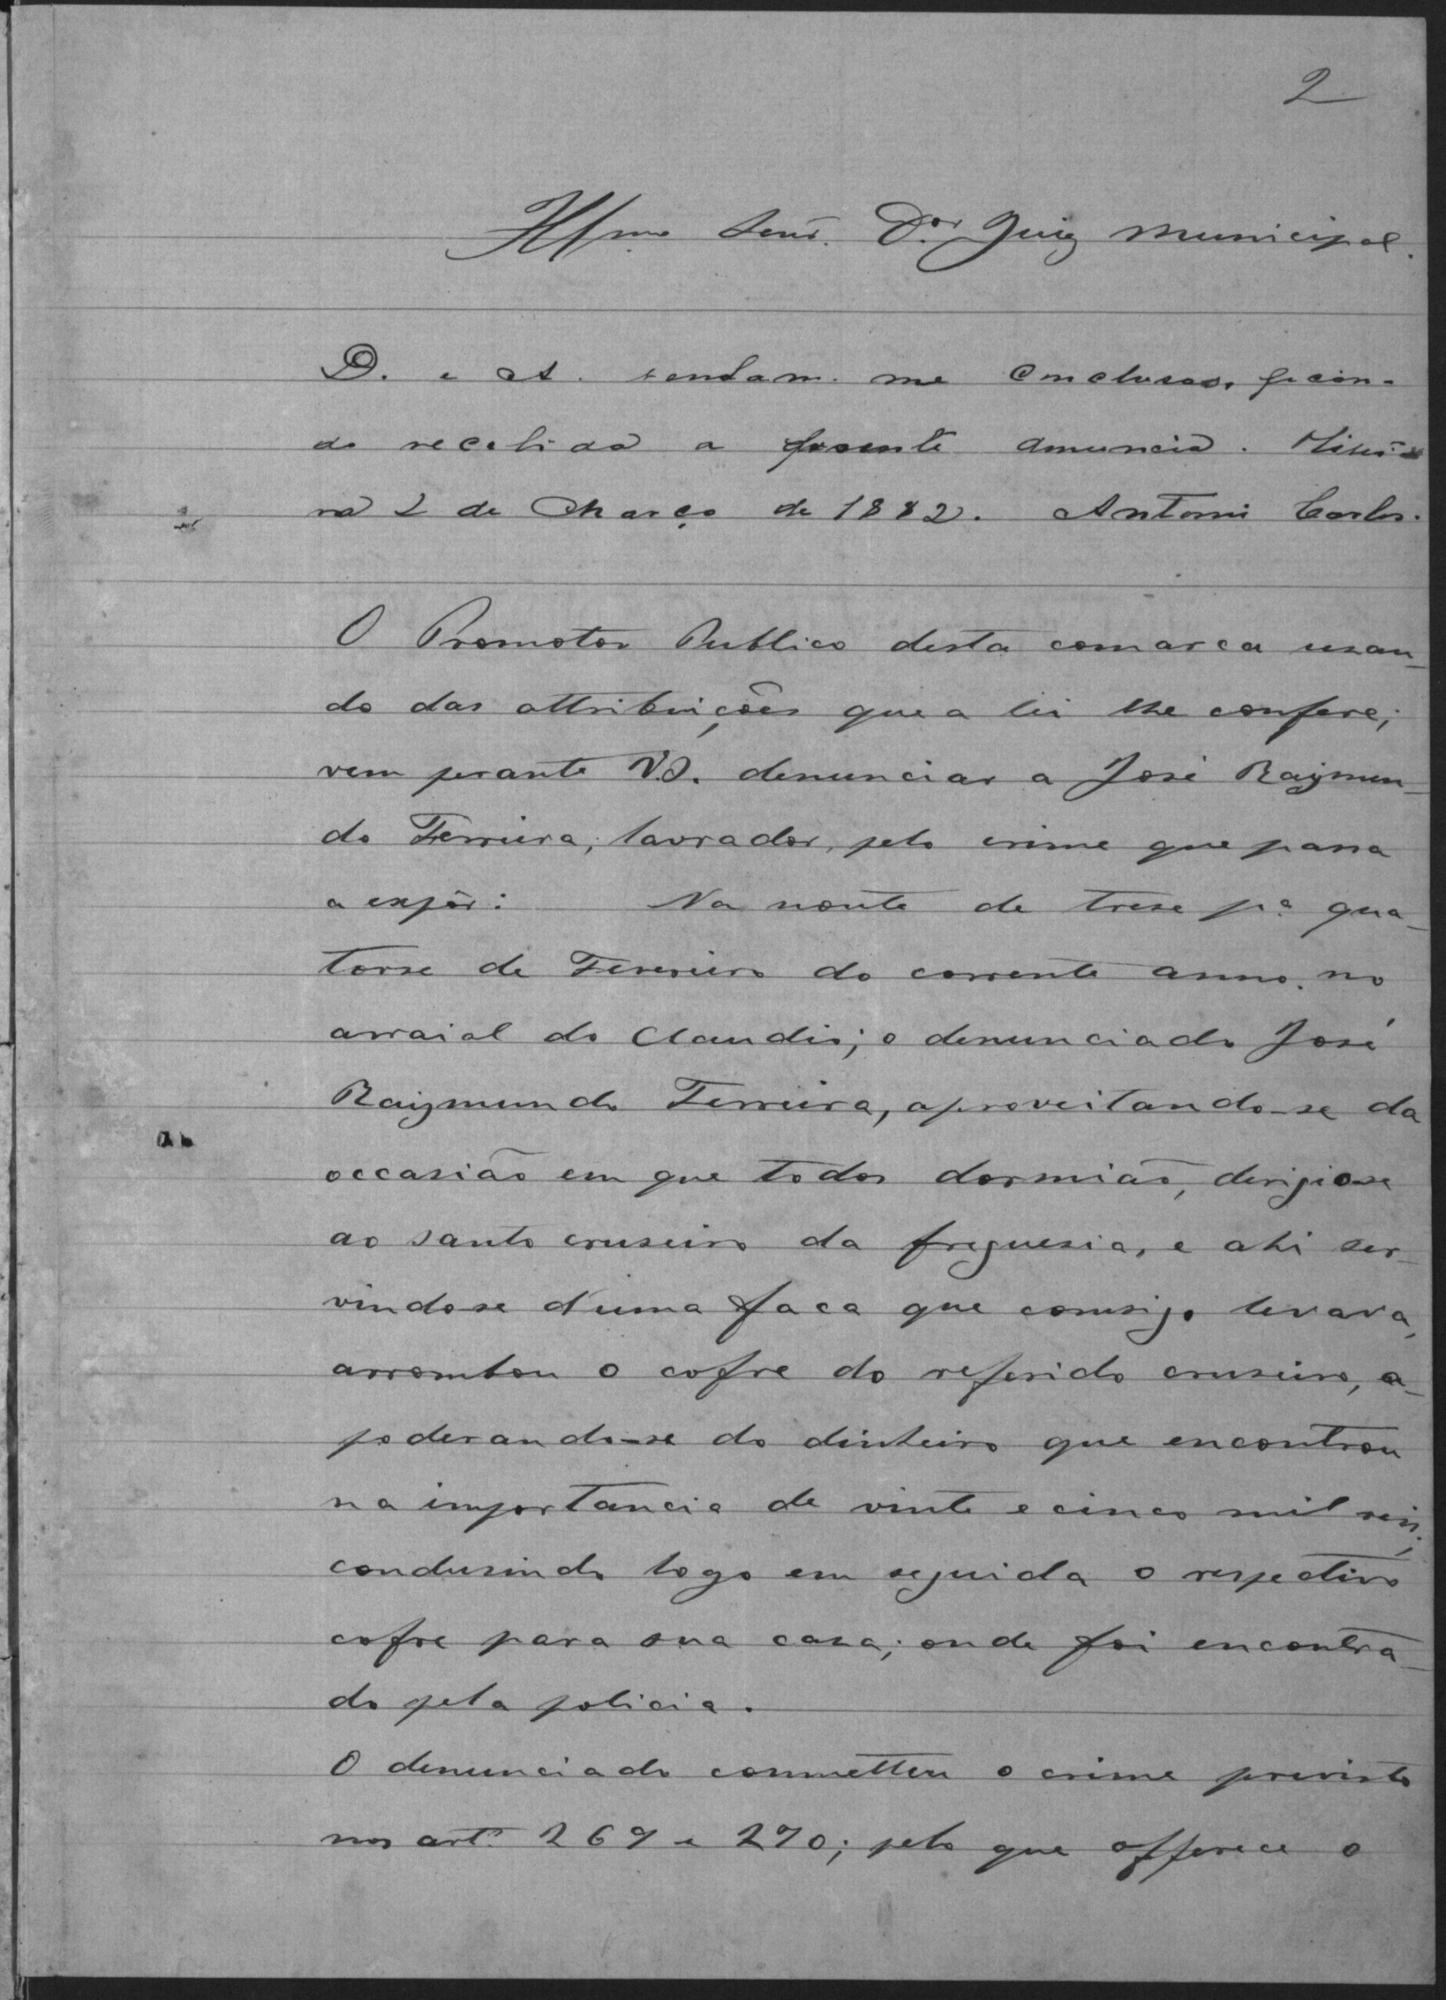 2
Illmo Senr. Dor. Juiz Municipal.
D. e A. venham-me conclusos, fican-
do recebida a presente denuncia.
2 de Março de 1882. Antonio Carlos.
O Promotor Publico desta comarca usan-
do das attribuições que a lei lhe confere;
vem perante V.S. denunciar a José Raymun-
do Ferreira; lavrador, pelo crime que passa
a expôr: Na noute de trese pa. qua-
torse de Fevereiro do corrente anno, no
arraial do Claudio; o denunciado José
Raymundo Ferreira, aproveitando-se da
occasião em que todos dormião, dirigio-se
ao santo cruseiro da freguesia, e ahi ser-
vindo-se d'uma faca que comsigo levava,
arrombou o cofre do referido cruseiro, a-
poderando-se do dinheiro que encontrou
na importancia de vinte e cinco mil reis;
condusindo logo em seguida o respectivo
cofre para sua casa; onde foi encontra-
do pela policia.
O denunciado commetteu o crime previsto
nos art. 269 e 270; pelo que offerece o